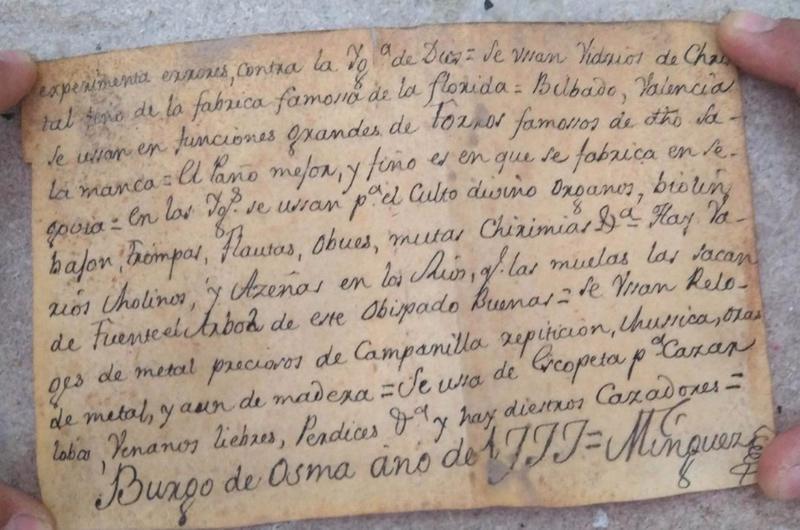 experimenta errores, contra la Ygª de Dios = Se ussan Vidrios de Chris
tal fino de la fabrica famossa de la florida = Bilbado, Valencia
Se ussan en funciones grandes de torros famossos de dho Sa-
lamanca = El Paño mejor, y fino es en que se fabrica en Se-
govia = en las Ygs. se ussan pª el Culto divino Organos, biolin,
bajon, trompas, Flautas, Obues, mutas Chirimias &ª = Hay Va-
rios Molinos, y Azeñas en los Rios, q. las muelas las sacan
de Fuente el Arbol de este Obispado Buenas = se Ussan Relo-
ges de metal preciosos de Campanilla repiticion, Mussica, oras
de metal, y aun de madera = Se ussa de Escopeta pª Cazar
lobos, Venanos liebres, Perdices &ª y hay diestros Cazadores =
Burgo de Osma año de 1777 = Minguez